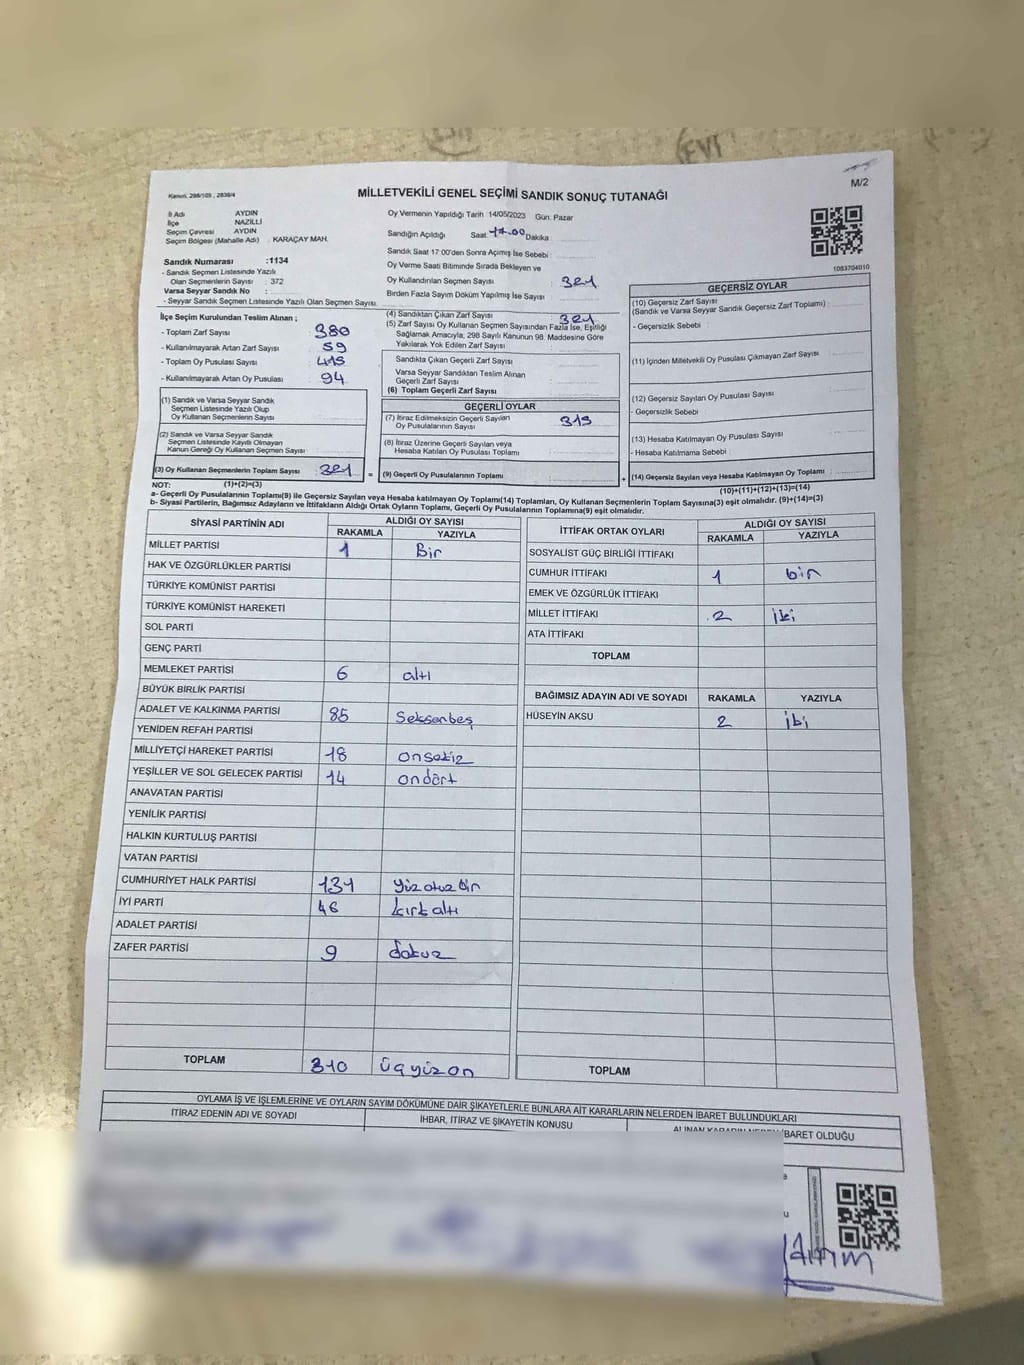 M/2
Kanun, 298/105 , 2839/4
MİLLETVEKİLİ GENEL SEÇİMİ SANDIK SONUÇ TUTANAĞI
İl Adı AYDIN
İlçe NAZİLLİ
Seçim Çevresi AYDIN
Seçim Bölgesi (Mahalle Adı) : KARAÇAY MAH.
Sandık Numarası :1134
- Sandık Seçmen Listesinde Yazılı
Olan Seçmenlerin Sayısı : 372
Varsa Seyyar Sandık No :
- Seyyar Sandık Seçmen Listesinde Yazılı Olan Seçmen Sayısı:
Oy Vermenin Yapıldığı Tarih 14/05/2023 Gün: Pazar
Sandığın Açıldığı Saat: 17.00 Dakika :
Sandık Saat 17:00'den Sonra Açımış İse Sebebi :
Oy Verme Saati Bitiminde Sırada Bekleyen ve
Oy Kullandırılan Seçmen Sayısı : 321
Birden Fazla Sayım Döküm Yapılmış İse Sayısı :
1083704010
İlçe Seçim Kurulundan Teslim Alınan ;
- Toplam Zarf Sayısı 380
- Kullanılmayarak Artan Zarf Sayısı 59
- Toplam Oy Pusulası Sayısı 415
- Kullanılmayarak Artan Oy Pusulası 94
(1) Sandık ve Varsa Seyyar Sandık
Seçmen Listesinde Yazılı Olup
Oy Kullanan Seçmenlerin Sayısı
(2) Sandık ve Varsa Seyyar Sandık
Seçmen Listesinde Kayıtlı Olmayan
Kanun Gereği Oy Kullanan Seçmen Sayısı
(3) Oy Kullanan Seçmenlerin Toplam Sayısı 321 =
(1)+(2)=(3)
(4) Sandıktan Çıkan Zarf Sayısı 321
(5) Zarf Sayısı Oy Kullanan Seçmen Sayısından Fazla İse, Eşitliği
Sağlamak Amacıyla, 298 Sayılı Kanunun 98. Maddesine Göre
Yakılarak Yok Edilen Zarf Sayısı :
Sandıkta Çıkan Geçerli Zarf Sayısı :
Varsa Seyyar Sandıktan Teslim Alınan
Geçerli Zarf Sayısı :
(6) Toplam Geçerli Zarf Sayısı :
GEÇERLİ OYLAR
(7) İtiraz Edilmeksizin Geçerli Sayılan
Oy Pusulalarının Sayısı : 319
(8) İtiraz Üzerine Geçerli Sayılan veya
Hesaba Katılan Oy Pusulası Toplamı :
(9) Geçerli Oy Pusulalarının Toplamı : +
GEÇERSİZ OYLAR
(10) Geçersiz Zarf Sayısı
(Sandık ve Varsa Seyyar Sandık Geçersiz Zarf Toplamı) :
- Geçersizlik Sebebi :
(11) İçinden Milletvekili Oy Pusulası Çıkmayan Zarf Sayısı :
(12) Geçersiz Sayılan Oy Pusulası Sayısı :
- Geçersizlik Sebebi :
(13) Hesaba Katılmayan Oy Pusulası Sayısı :
- Hesaba Katılmama Sebebi :
(14) Geçersiz Sayılan veya Hesaba Katılmayan Oy Toplamı :
(10)+(11)+(12)+(13)=(14)
NOT:
a- Geçerli Oy Pusulalarının Toplamı(9) ile Geçersiz Sayılan veya Hesaba katılmayan Oy Toplamı(14) Toplamları, Oy Kullanan Seçmenlerin Toplam Sayısına(3) eşit olmalıdır. (9)+(14)=(3)
b- Siyasi Partilerin, Bağımsız Adayların ve İttifakların Aldığı Ortak Oyların Toplamı, Geçerli Oy Pusulalarının Toplamına(9) eşit olmalıdır.
SİYASİ PARTİNİN ADI ALDIĞI OY SAYISI
RAKAMLA YAZIYLA
MİLLET PARTİSİ 1 Bir
HAK VE ÖZGÜRLÜKLER PARTİSİ
TÜRKİYE KOMÜNİST PARTİSİ
TÜRKİYE KOMÜNİST HAREKETİ
SOL PARTİ
GENÇ PARTİ
MEMLEKET PARTİSİ 6 altı
BÜYÜK BİRLİK PARTİSİ
ADALET VE KALKINMA PARTİSİ 85 Seksenbeş
YENİDEN REFAH PARTİSİ
MİLLİYETÇİ HAREKET PARTİSİ 18 onsekiz
YEŞİLLER VE SOL GELECEK PARTİSİ 14 ondört
ANAVATAN PARTİSİ
YENİLİK PARTİSİ
HALKIN KURTULUŞ PARTİSİ
VATAN PARTİSİ
CUMHURİYET HALK PARTİSİ 131 Yüz otuz bir
İYİ PARTİ 46 kırk altı
ADALET PARTİSİ
ZAFER PARTİSİ 9 dokuz
TOPLAM 310 üçyüz on
İTTİFAK ORTAK OYLARI ALDIĞI OY SAYISI
RAKAMLA YAZIYLA
SOSYALİST GÜÇ BİRLİĞİ İTTİFAKI
CUMHUR İTTİFAKI 1 bir
EMEK VE ÖZGÜRLÜK İTTİFAKI
MİLLET İTTİFAKI 2 iki
ATA İTTİFAKI
TOPLAM
BAĞIMSIZ ADAYIN ADI VE SOYADI RAKAMLA YAZIYLA
HÜSEYİN AKSU 2 iki
TOPLAM
OYLAMA İŞ VE İŞLEMLERİNE VE OYLARIN SAYIM DÖKÜMÜNE DAİR ŞİKAYETLERLE BUNLARA AİT KARARLARIN NELERDEN İBARET BULUNDUKLARI
İTİRAZ EDENİN ADI VE SOYADI İHBAR, İTİRAZ VE ŞİKAYETİN KONUSU ALINAN KARARIN NEDEN İBARET OLDUĞU